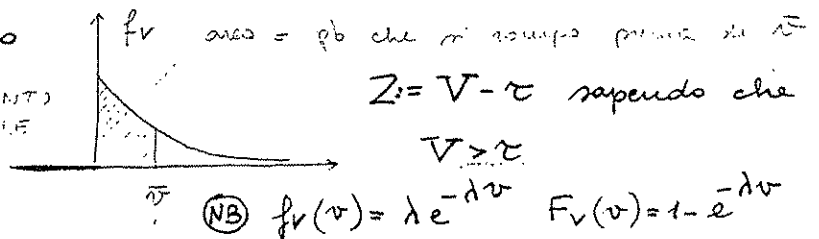 o fv area = pb che si rompa prima di v̄
NTO Z:= V-τ sapendo che
LE V>τ
v̄ NB fv(v)=λe^-λv Fv(v)=1-e^-λv